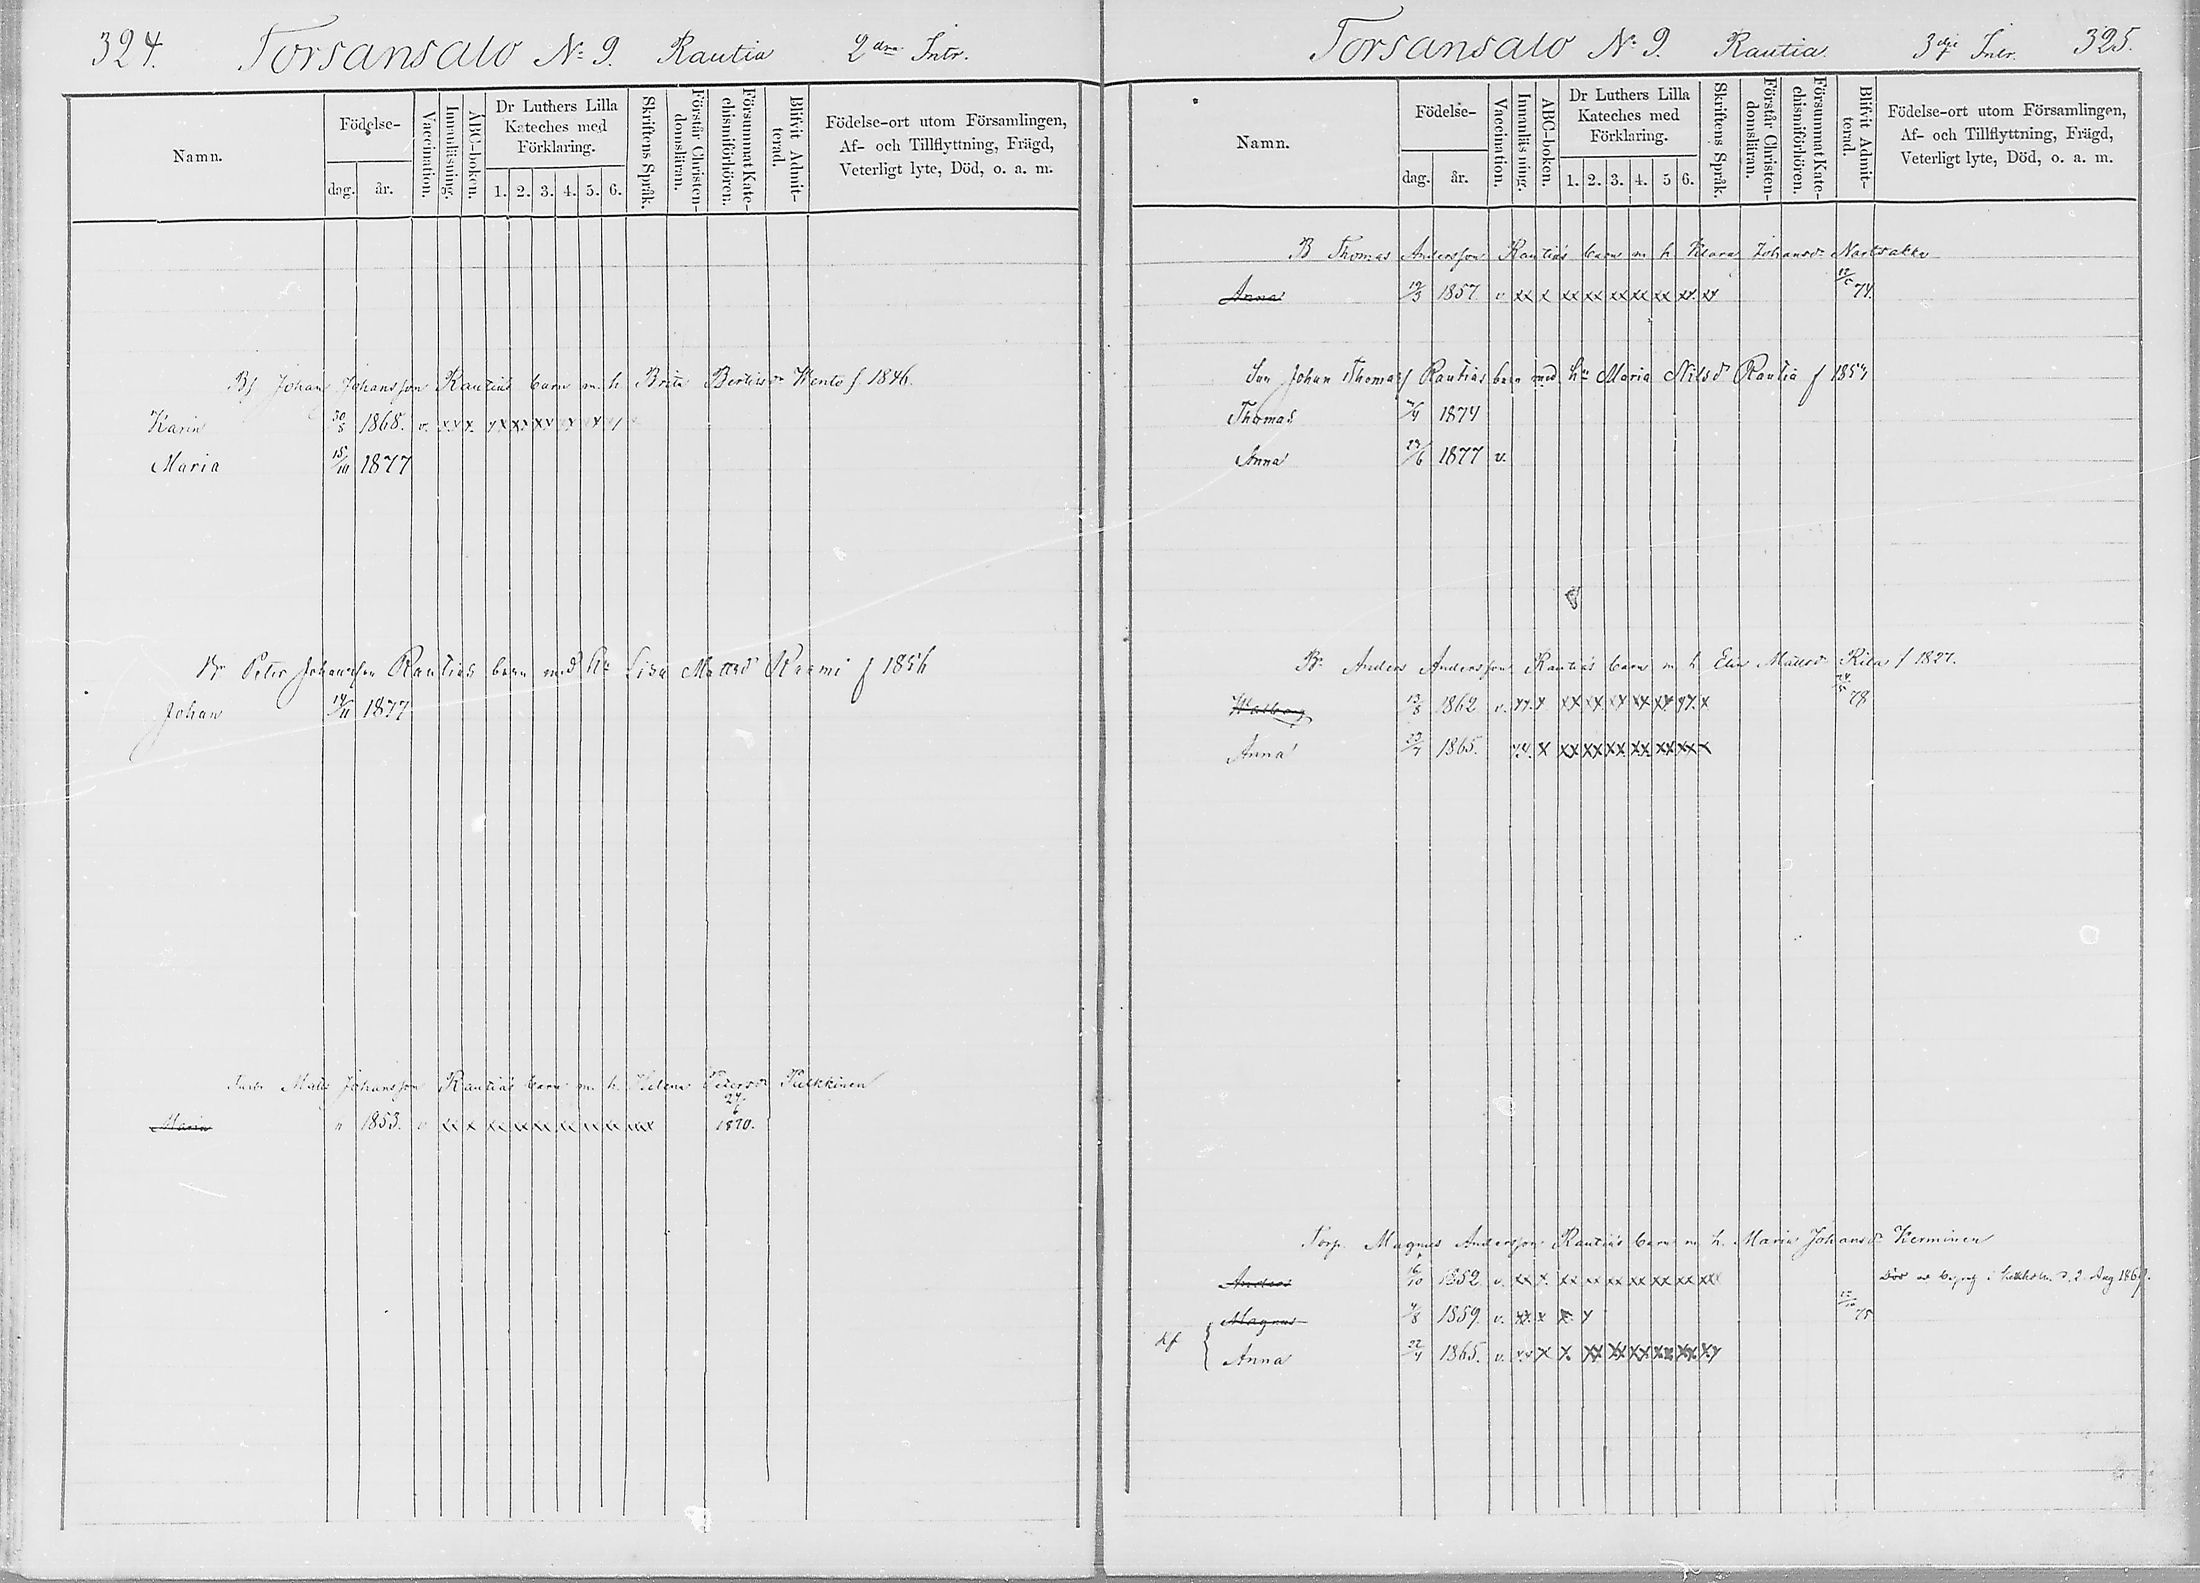 324. Torsansalo No 9. Rautia 2dra Intr.
Namn.
Födelse-
dag. år.
Vaccination.
Innanläsning.
ABC-boken.
Dr Luthers Lilla
Kateches med
Förklaring.
1. 2. 3. 4. 5. 6.
Skriftens Språk.
Förstår Christen-
domsläran.
Försummat Kate-
chismiförhören.
Blifvit Admit-
terad.
Födelse-ort utom Församlingen,
Af- och Tillflyttning, Frägd,
Veterligt lyte, Död, o. a. m.
Johan Johansson Rautias barn m. h. Brita Wento f 1846.
Karin 1868. v. xx x. xx xx xx xx
Maria 15/10 1877
Peter Johansson Rautias barn med hu Lisa Mattsd f 1856
Johan 1877
Mats Johansson Rautias barn m. h. Helena Petersdr Pulkkinen
Maria " 1853. v xx x xx xx xx xx xx xx xxx 24/6 1870.
Torsansalo No 9. Rautia 3dje Intr. 325.
Namn.
Födelse-
dag. år.
Vaccination.
Innanläsning.
ABC-boken.
Dr Luthers Lilla
Kateches med
Förklaring.
1. 2. 3. 4. 5 6.
Skriftens Språk.
Förstår Christen-
domsläran.
Försummat Kate-
chismiförhören.
Blifvit Admit-
terad.
Födelse-ort utom Församlingen,
Af- och Tillflyttning, Frägd,
Veterligt lyte, Död, o. a. m.
B Thomas Andersson Rautias barn m h Klara Johansdr
Anna 19/3 1857 v xx x xx xx xx xx xx xx xx 74.
Son Johan Thomas Rautias barn med hu Maria Nilsdr Rautia f
Thomas 1874
Anna 1877 v.
Br Anders Andersson Rautias barn m. h Elin Mattsdr f 1827.
Walborg 1862 v. xx. x xx xx xx xx xx xx. x 78
Anna 1865. xx. x xx xx xx xx. xx xx x
Torp. Magnus Andersson Rautias barn m h. Maria Johansdr Kerminen
Anders 16/10 1852 v. xx x. xx xx xx xx xx xx xxx
Magnus 1859. v. xx. x x. x 75
Anna 22/4 1865. v. xx x x. xx xx xx xx xx. xx